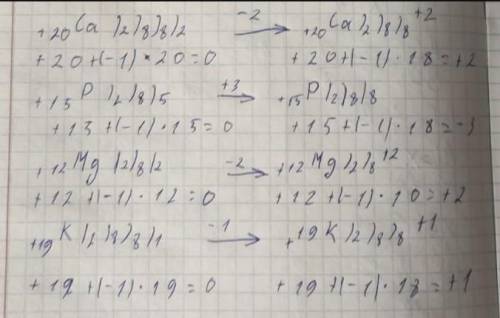 +20 Ca )2)8)8)2 -2→ +20 Ca )2)8)8 +2
+20+(-1)·20=0 +20+(-1)·18=+2
+15 P )2)8)5 +3→ +15 P )2)8)8
+15+(-1)·15=0 +15+(-1)·18=-3
+12 Mg )2)8)2 -2→ +12 Mg )2)8 +2
+12+(-1)·12=0 +12+(-1)·10=+2
+19 K )2)8)8)1 -1→ +19 K )2)8)8 +1
+19+(-1)·19=0 +19+(-1)·18=+1